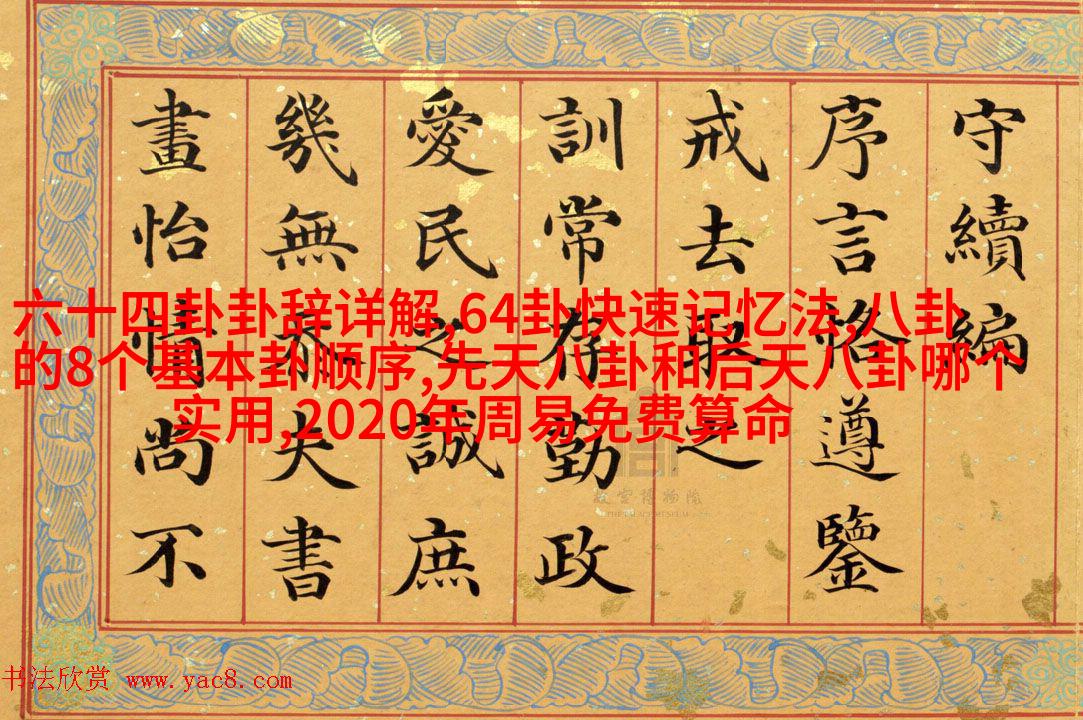 守續編
序言恪遵鑒
戒去取之
訓常存勤政
愛民之誠庶
幾無忝夫書
畫怡情尚不
六十四卦卦辞详解,64卦快速记忆法,八卦
的8个基本卦顺序,先天八卦和后天八卦哪个
实用,2020年周易免费算命
故宫博物院
THE PALACE MUSEUM
书法欣赏 www.yac8.com